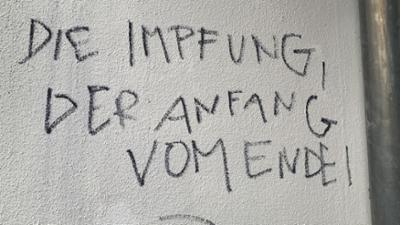 DIE IMPFUNG,
DER ANFANG
VOM ENDE!